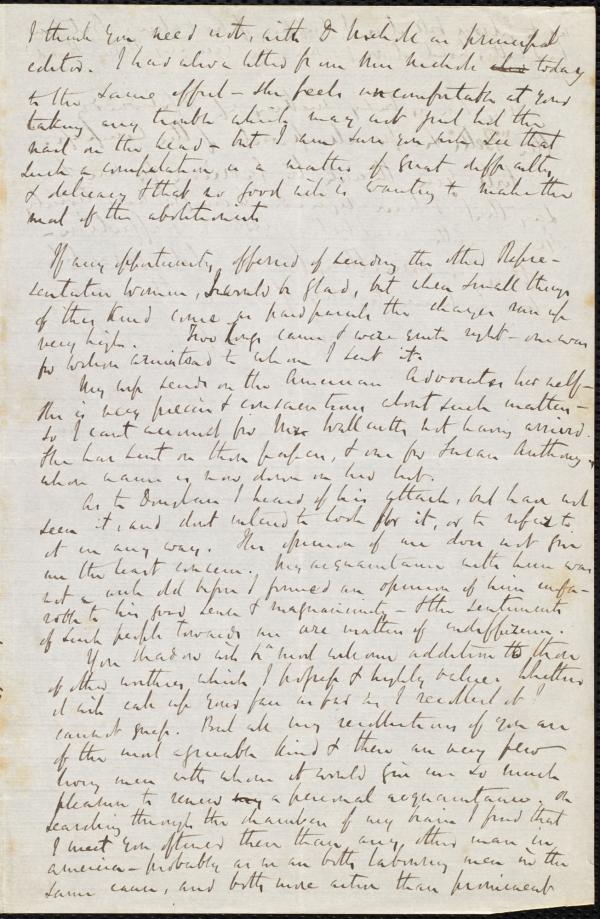 I think you need not, with Dr Nichole as principal
editor. I had also a letter from Mrs Nichole today
to the same effect – She feels uncomfortable at your
taking any trouble which may not just hit the
nail on the head – but I am sure you will see that
such a compilation is a matter of great difficulty
& delicacy & that no good will is wanting to make the
most of the abolitionists
If any opportunity offered of sending the other Repre-
sentative Women, I would be glad, but when small things
of this kind come in paid parcels the charges run up
very high. Two long came & were quite right – one was
for Wilson Armistead to whom I sent it.
My wife sends on the American Advocates herself –
She is very precise & conscientious about such matters –
So I cant account for Mr Wallcutts not having arrived.
She has sent on those papers, & one for Susan Anthony,
whose name is now down on her list.
As to Douglass I heard of his attack, but have not
seen it, and dont intend to look for it, or to refer to
it in any way. His opinion of me does not give
me the least concern. My acquaintance with him was
not a week old before I formed an opinion of him unfa-
to his good sense & magnanimity – & the sentiments
of such people towards me are matters of indifference.
Your shadow will be a most welcome addition to those
of other worthies which I possess & highly value. Whether
it will call up your face as far as I recollect it I
cannot guess. But all my recollections of you are
of the most agreeable kind & there are very few
living men with whom it would give me so much
pleasure to renew a personal acquaintance. On
searching through the chambers of my brain I find that
I meet you oftener there than any other man in
America – probably as we are both labouring men in the
same cause, and both more active than prominent